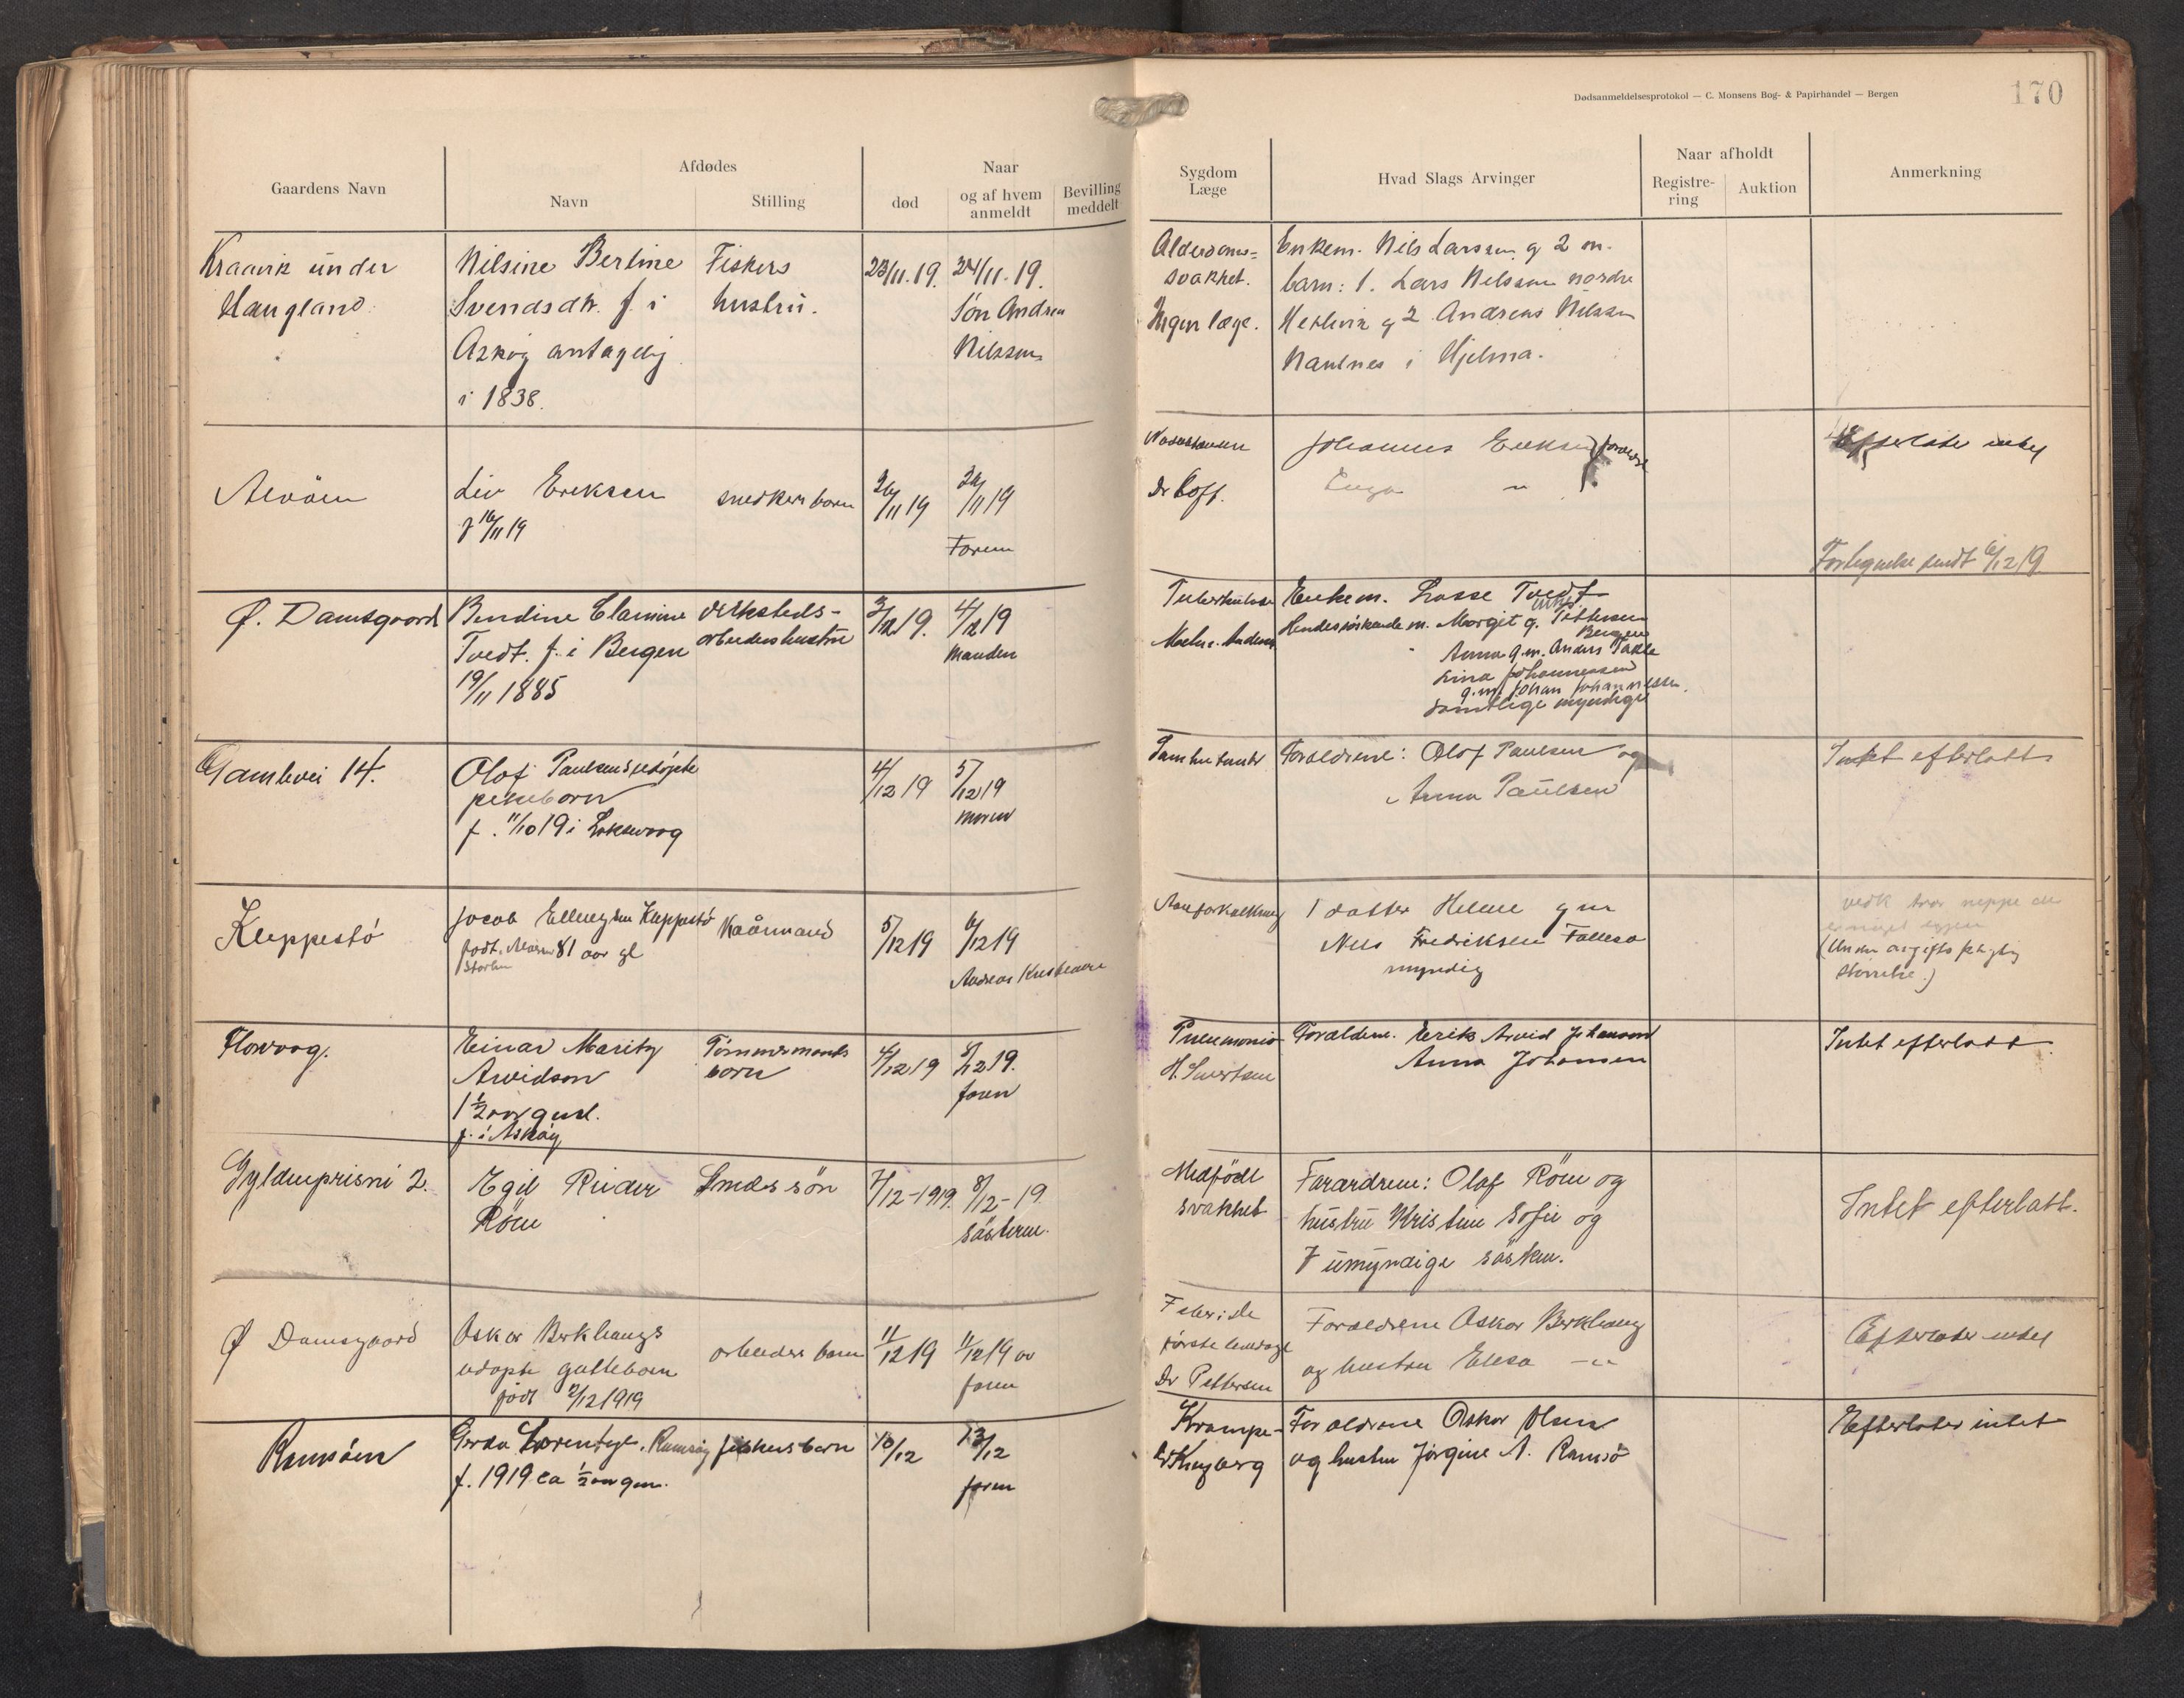 Dødsanmeldelsesprotokol — C. Monsens Bog- & Papirhandel — Bergen
170
Gaardens Navn
Afdødes
Navn
Stilling
død
Naar
og af hvem
anmeldt
Bevilling
meddelt
Sygdom
Læge
Hvad Slags Arvinger
Naar afholdt
Registre-
ring
Auktion
Anmerkning
Kraavik under
Haugland
Nilsine Bertine
Svendsdtr. f. i
Askøy antagelig
i 1838.
Fiskers
hustru.
23/11.19.
24/11.19.
Søn Andreas
Nilssen
Alderdoms-
svakhet.
Ingen læge.
Enkem. Nils Larssen og 2 m.
barn: 1. Lars Nilssen nordre
og 2 Andreas Nilssen
i Hjelma.
Alvøen
Liv Eriksen
f 16/11 19
snedkers barn
26/11 19
/11 19
Faren
Dr
Johannes Eriksen
"
foreldre
Efterlater intet
Fortegnelse sendt 6/12 19
Ø. Damsgaard
Bendine
Tvedt. f. i Bergen
19/11 1885
verksteds-
arbeiders hustru
3/12 19.
4/12 19
manden
Tuberkulose
Enkem. Lasse Tvedt
Hendes søskende m. Margit g. Pettersen
Bergen
Anna g.m. Anders
Lina Johannessen
g.m. Johan Johannessen.
samtlige myndige
Gamlevei 14.
Olof Paulsens udøpte
pikebarn
f. 11/10 19 i Laksevaag
4/12 19
5/12 19
moren
Foraldrene: Olof Paulsen og
Anna Paulsen
Intet efterlatt
Kleppestø
Jacob Ellingsen Kleppestø
født
81 aar gl
Kaarmand
5/12 19
6/12 19
Andreas
Aareforkalkning
1 datter Helene g m
Nils Fredriksen
myndig
(Under avgiftspligtig
størrelse.)
Florvaag.
Einar Maritz
Arvidson
1 1/2 aar gml.
f. i Askøy
Tømmermands
barn
4/12 19
8/12 19.
faren
Pneumonia
Foraldrene. Erik Arvid Johanson
Anna Johansen
Intet efterlatt.
Gyldenprisni 2.
Egil Reidar
Röen
Smeds søn
7/12-1919.
8/12-19
søsteren.
Medfödt
svakhet
Forældrene: Olaf Röen og
hustru Kristine Sofie og
7 umyndige søsken.
Intet efterlatt.
Ø Damsgaard
Oskar Berkhaugs
udøpte guttebarn
født /12 1919
arbeiders barn
11/12 19
11/12 19 av
faren
i de
første levedage
Dr Pettersen
Foraldrene Oskar Berkhaug
og hustru
Efterlater intet
Ramsøen
Gerda Lorentze. Ramsøy
f. 1919 ca 1/2 aar gm.
fiskers barn
10/12
13/12
faren
Krampe-
Foraldrene Oskar Olsen
og hustru Jørgine A. Ramsö
Efterlater intet